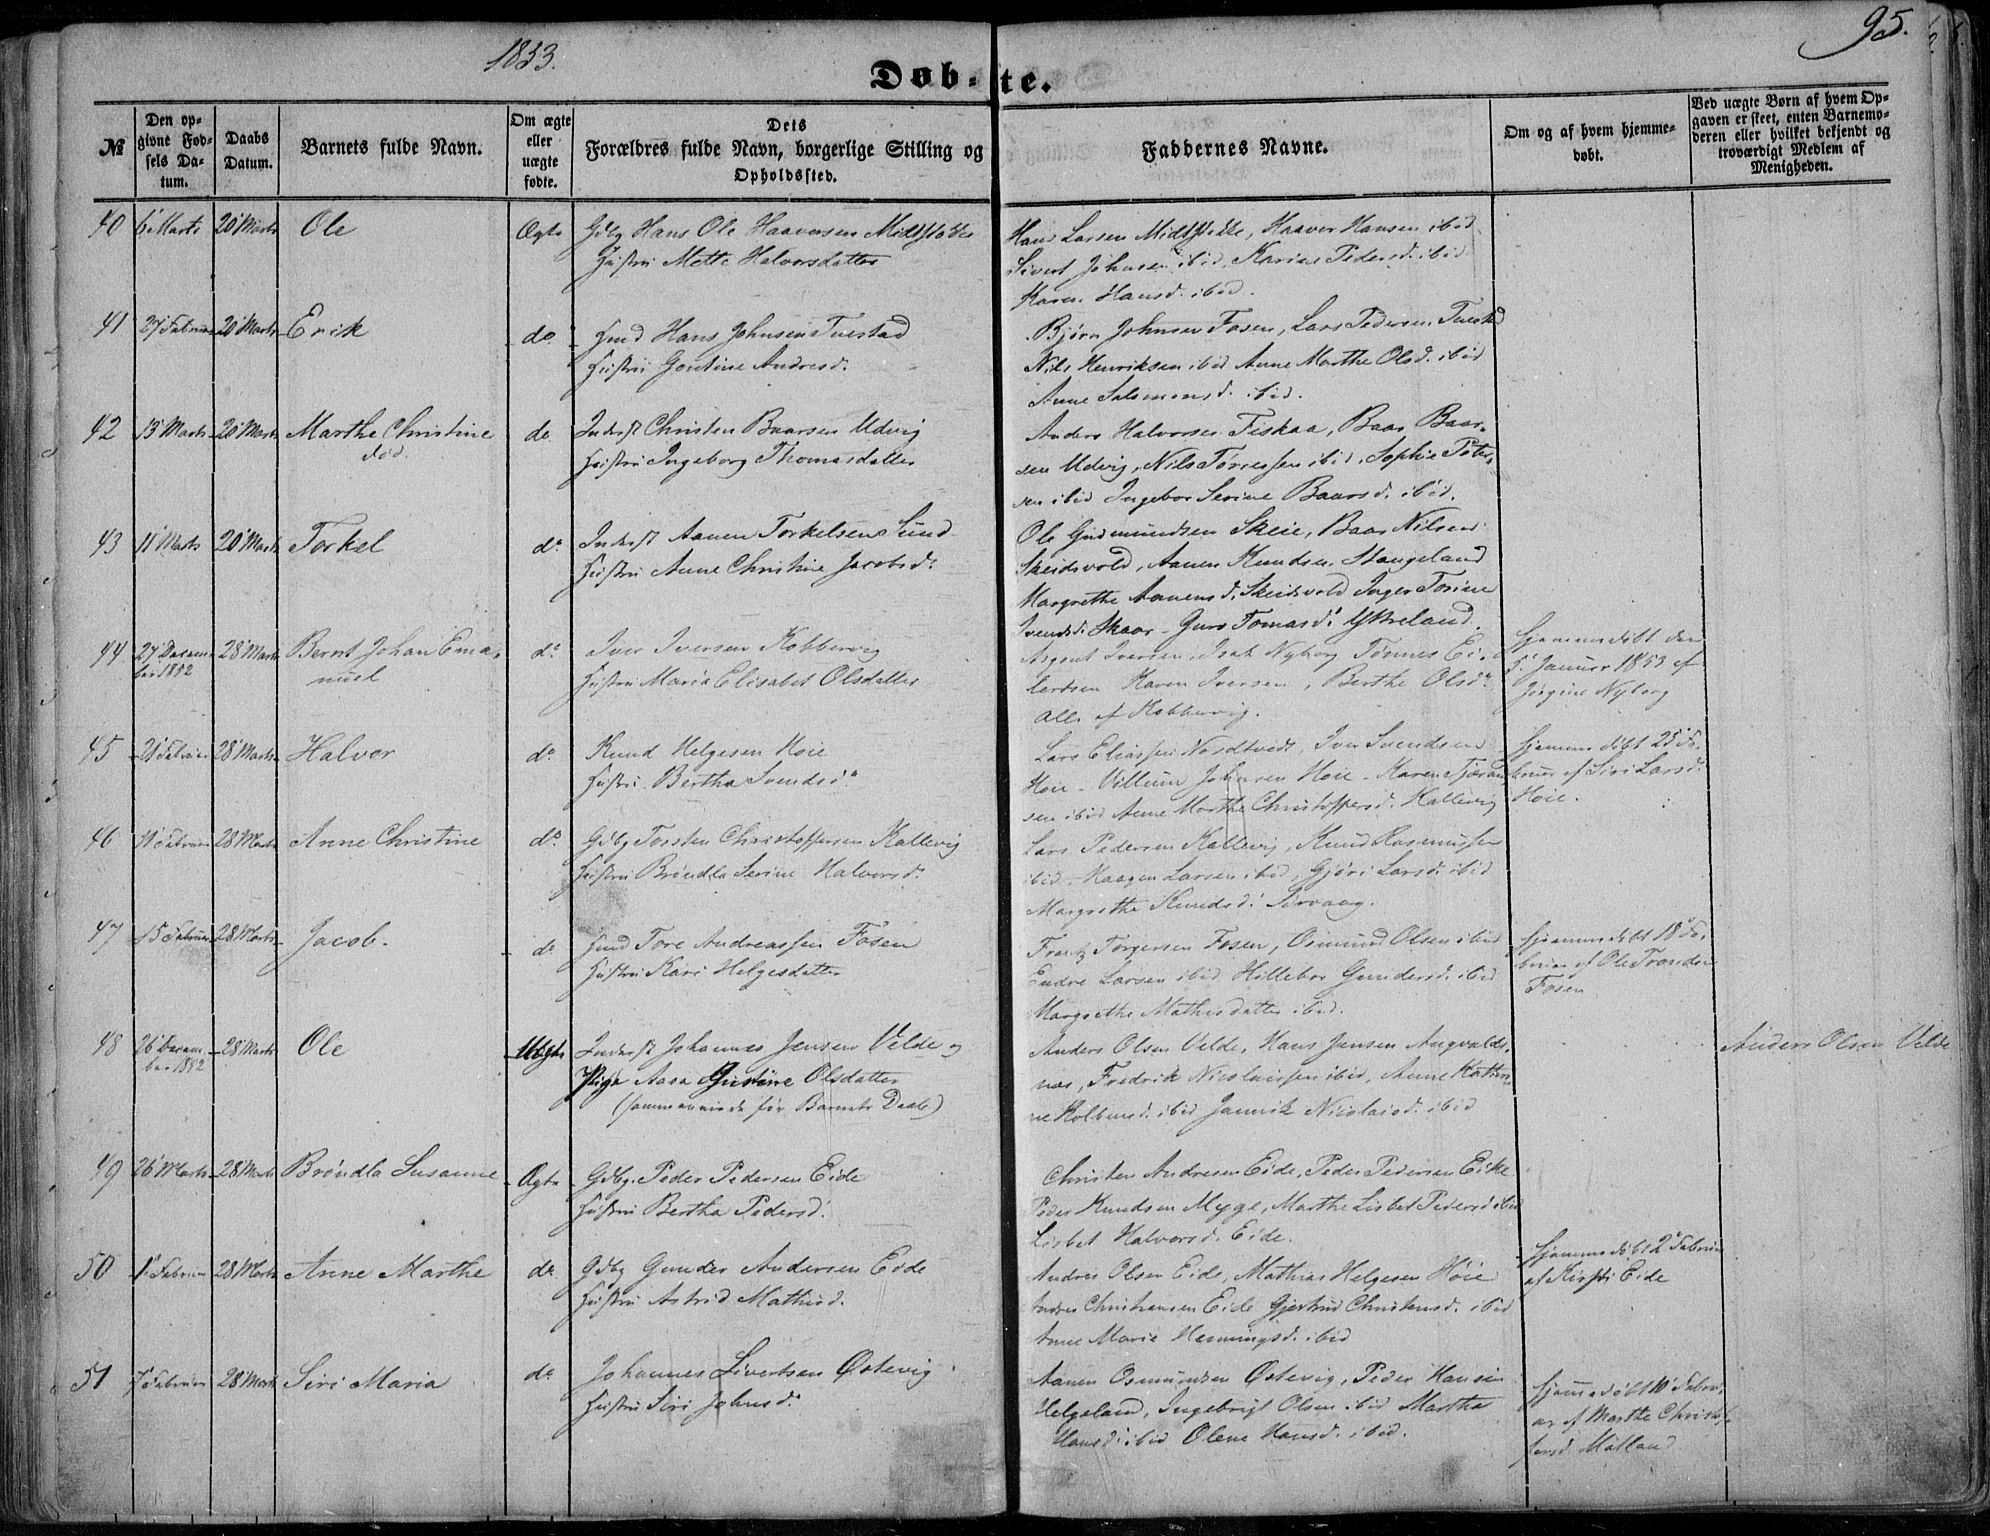 1853.
95.
Døb-te.
№
Den op-
givne Fød-
sels Da-
tum.
Daabs
Datum.
Barnets fulde Navn.
Om ægte
eller
uægte
fødte.
Dets
Forældres fulde Navn, borgerlige Stilling og
Opholdssted.
Faddernes Navne.
Om og af hvem hjemme-
døbt.
Ved uægte Børn af hvem Op-
gaven er skeet, enten Barnemo-
deren eller hvilket bekjendt og
troværdigt Medlem af
Menigheden.
40 6 Marts 20 Marts Ole Ægte Gdbg Hans Ole Haaversen Midtstokke
Hustru Mette Halvorsdatter
Hans Larsen Midtstokke, Haaver Hansen ibid
Sivert Johnsen ibid, Karine Pedersd. ibid
Karen Hansd. ibid.
41 27 Februar 20 Marts Erik do Hans Johnsen Tuestad
Hustru Gontine Andresd.
Bjørn Johnsen Fosen, Lars Pedersen Tuestad
Nils Henriksen ibid Anne Marthe Olsd. ibid
Anne Salomonsd. ibid.
42 13 Marts 20 Marts Marthe Christine do Inderst Christen Baarsen Udvig
død.
Hustru Ingeborg Thomasdatter
Anders Halvorsen Fiskaa, Baar Baar-
sen Udvig, Nils Tørresen ibid, Sophie Peter-
sen ibid Ingebor Serine Baarsd. ibid.
43 11 Marts 20 Marts Torkel do Inderst Aanen Torkelsen Sund
Hustru Anne Christine Jacobsd.
Ole Gudmundsen Skeie, Baar Nilsen
Skeidsvold, Aanen Knudsen Stangeland
Margrethe Aanensd. Skeidsvold Inger Torine
Svendsd. Skaar - Guro Tomasd. Ystreland.
44 27 Decem- 28 Marts Bernt Johan Ema- do Iver Iversen Kobbervig
ber 1852 nuel
Hustru Maria Elisabet Olsdatter
Asgaut Iversen, Isak Nyborg Tønnes Ei-
lertsen Karen Iversen, Berthe Olsd.
Alle af Kobbervig.
Hjemmedøbt den
5. Januar 1853 af
Jørgine Nyborg
45 21 Februar 28 Marts Halvor do Knud Helgesen Høie
Hustru Bertha Svendsd.
Lars Eliassen Nordtvedt, Iver Svendsen
Høie - Villum Johnsen Høie - Karen
sen ibid Anne Marthe Christoffersd. Kallevig
Hjemmedøbt 25 Fe-
bruar af Siri Larsd.
Høie.
46 11 Februar 28 Marts Anne Christine do Gdbg Torsten Christoffersen Kallevig
Hustru Brøndla Serine Halvorsd.
Lars Pedersen Kallevig, Knud Rasmussen
ibid, Haagen Larsen ibid, Gjøri Larsd. ibid
Margrethe Knudsd. Sørvaag.
47 15 Februar 28 Marts Jacob. do Tore Andreassen Fosen
Hustru Kari Helgesdatter
Frantz Torgersen Fosen, Osmund Olsen ibid
Endre Larsen ibid Hillebor Gundersd. ibid
Margrethe Mathisdatter ibid.
Hjemmedøbt 18 Fe-
bruar af Ole Trondsen
Fosen
48 26 Decem- 28 Marts Ole Uægte Inderst Johannes Jensen Velde og
ber 1852
Pige Aasa Gustine Olsdatter
(sammenviede før Barnets Daab)
Anders Olsen Velde, Hans Jensen Augvalds-
nes, Fredrik Nicolaisen ibid, Anne Kathri-
ne Kolbensd. ibid Jannik Nicolaisd. ibid
Anders Olsen Velde
49 26 Marts 28 Marts Brøndla Susanne Ægte Gdbg. Peder Pedersen Eide
Hustru Bertha Pedersd.
Christen Andresen Eide, Peder Pedersen Eike
Peder Knudsen Myge, Marthe Lisbet Pedersd. ibid
Lisbet Halvorsd. Eide.
50 1 Februar 28 Marts Anne Marthe do Gdbg Gunder Andersen Eide
Hustru Astrid Mathisd.
Andres Olsen Eide, Mathias Helgesen Høie
Andres Christiansen Eide Gjertrud Christensd. ibid
Anne Marie Hemmingsd. ibid
Hjemmedøbt 2 Februar
af Kirsti Eide
51 7 Februar 28 Marts Siri Maria do Johannes Sivertsen Østevig
Hustru Siri Johnsd.
Aanen Osmundsen Østevig, Peder Hansen
Helgeland, Ingebrigt Olsen ibid Martha
Hansd. ibid Olene Hansd. ibid.
Hjemmedøbt 10 Febru-
ar af Marthe Christof-
fersd. Matland